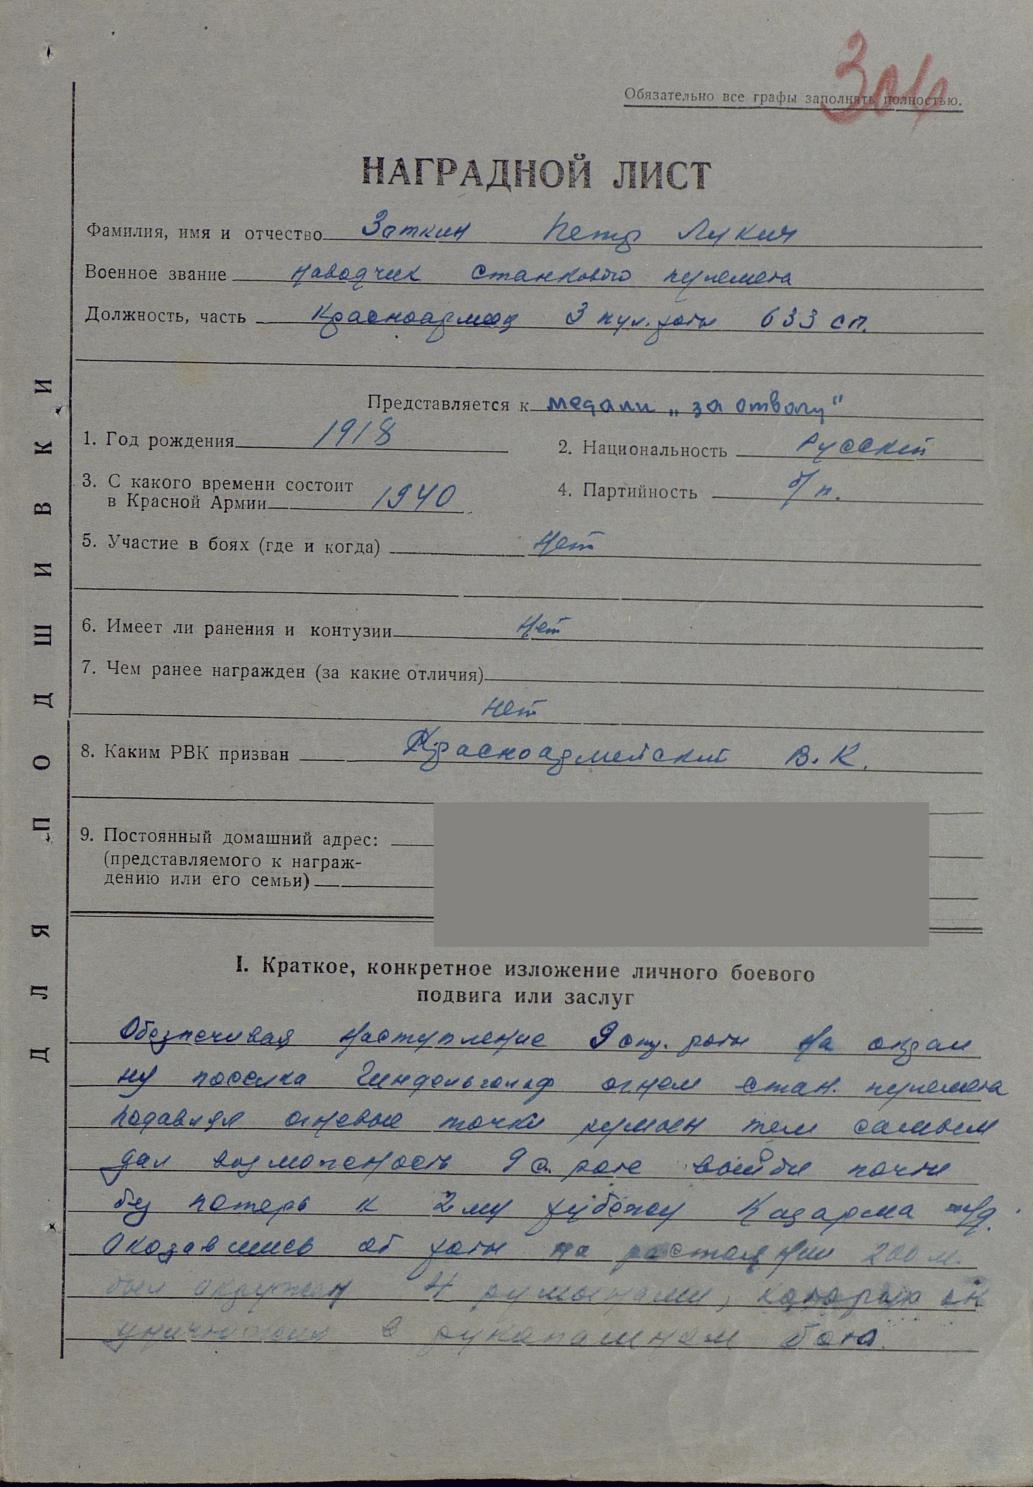 Обязательно все графы заполнять полностью.
304
НАГРАДНОЙ ЛИСТ
Фамилия, имя и отчество Заткин Петр Лукич
Военное звание наводчик станкового пулемета
Должность, часть Красноармеец 3 пул. роты 633 сп.
Представляется к медали „за отвагу"
1. Год рождения 1918
2. Национальность Русский
3. С какого времени состоит
в Красной Армии 1940
4. Партийность б/п.
5. Участие в боях (где и когда) Нет
6. Имеет ли ранения и контузии Нет
7. Чем ранее награжден (за какие отличия)
нет
8. Каким РВК призван Красноармейский В.К.
9. Постоянный домашний адрес:
(представляемого к награж-
дению или его семьи)
ДЛЯ ПОДШИВКИ
I. Краткое, конкретное изложение личного боевого
подвига или заслуг
Обезпечивая наступление 9 роты на окраи
ну поселка огнем стан. пулемета
подавлял огневые точки румын тем самым
дал возможность 9 с. роте выйти почти
без потерь к 2му рубежу Казарма
Оказавшись от роты на растоянии 200 м.
был окружен 4 румынами, которых он
уничтожил в рукапашнам бою.